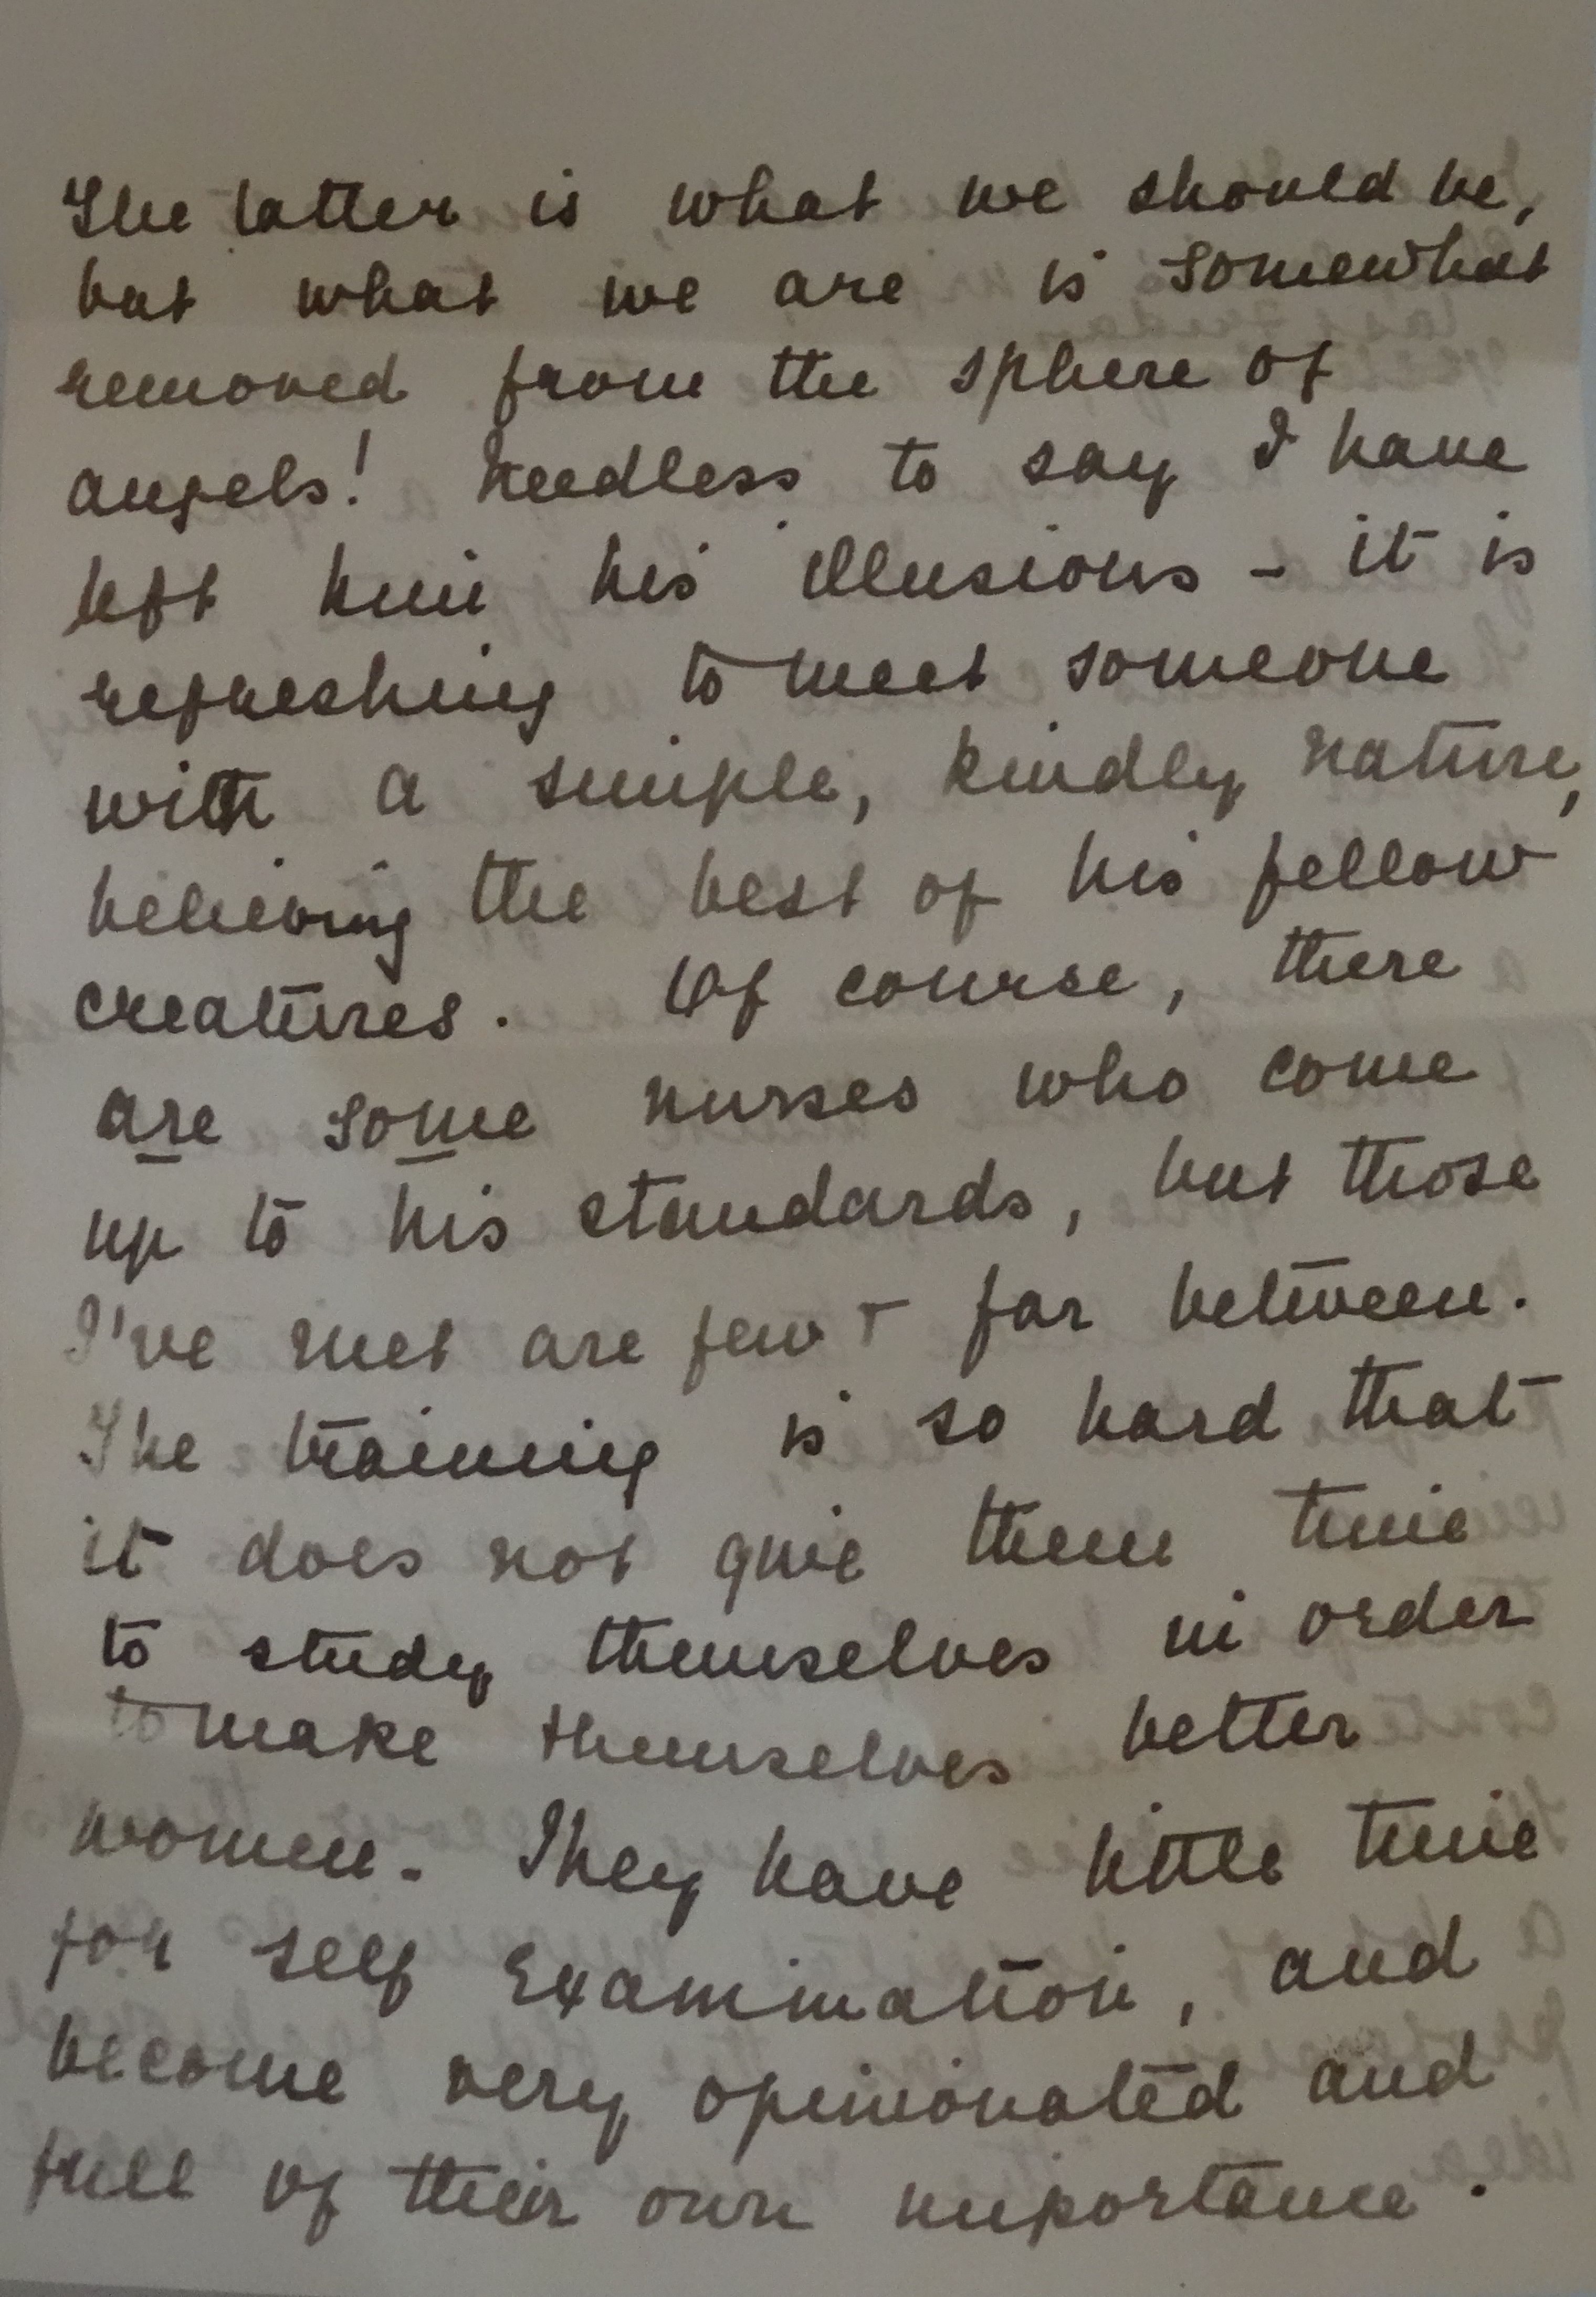 The latter is what we should be,
but what we are is somewhat
removed from the sphere of
angels! Needless to say I have
left him his illusions - it is
refreshing to meet someone
with a simple, kindly nature,
believing the best of his fellow
creatures. Of course, there
are some nurses who come
up to his standards, but those
I've met are few + far between.
The training is so hard that
it does not give them time
to study themselves in order
to make themselves better
women. They have little time
for self examination, and
become very opinionated and
full of their own importance.